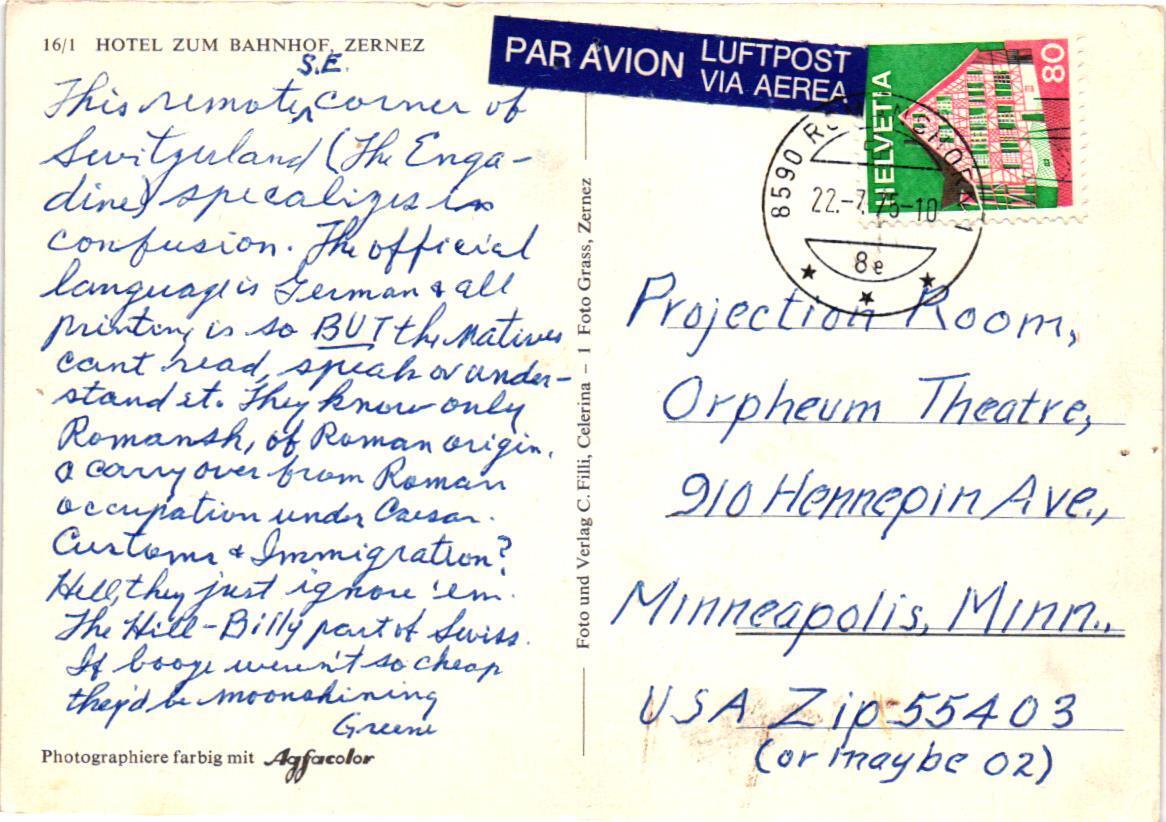 16/1 HOTEL ZUM BAHNHOF, ZERNEZ
S.E.
This remote corner of
Switzerland (The Enga-
dine) specalizes in
confusion. The official
language is German & all
printing is so BUT the natives
cant read, speak or under-
stand it. They know only
Romansh, of Roman origin,
a carry over from Roman
occupation under Caesar.
Customs & Immigration?
Hell, they just ignore 'em.
The Hill-Billy part of Swiss.
If booze weren't so cheap
they'd be moonshining
Greene
Photographiere farbig mit Agfacolor
Foto und Verlag C. Filli, Celerina – 1 Foto Grass, Zernez
PAR AVION LUFTPOST
VIA AEREA
HELVETIA
80
8590
22.-7.75-10
8e
Projection Room,
Orpheum Theatre,
910 Hennepin Ave.,
Minneapolis, Minn.,
USA Zip 55403
(or maybe 02)